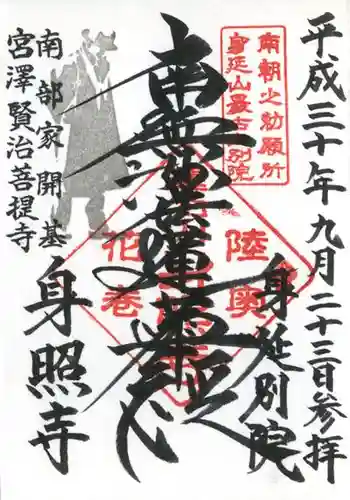 平成三十年九月二十三日参拝
南朝之勅願所
身延山最古別院
陸奥
花巻
身延別院
南無妙法蓮華経
南部家開基
宮澤賢治菩提寺
身照寺